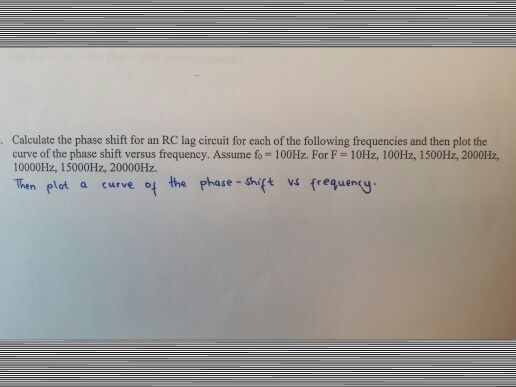 . Calculate the phase shift for an RC lag circuit for each of the following frequencies and then plot the
curve of the phase shift versus frequency. Assume fo = 100Hz. For F = 10Hz, 100Hz, 1500Hz, 2000Hz,
10000Hz, 15000Hz, 20000Hz.
Then plot a curve of the phase-shift vs frequency.